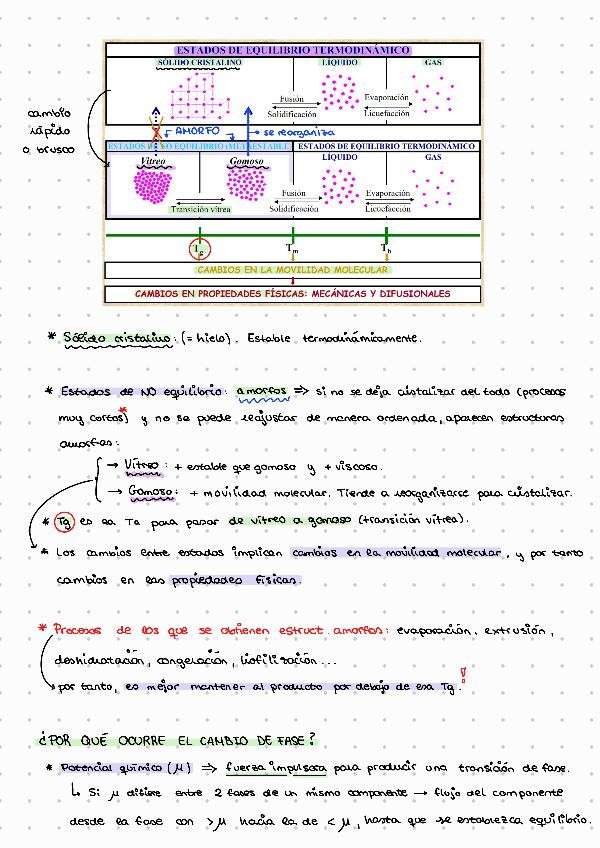 ESTADOS DE EQUILIBRIO TERMODINÁMICO
SÓLIDO CRISTALINO LÍQUIDO GAS
Fusión Evaporación
Solidificación Licuefacción
cambio
rápido
o brusco
AMORFO se reorganiza
ESTADOS DE NO EQUILIBRIO (METAESTABLE) ESTADOS DE EQUILIBRIO TERMODINÁMICO
Vítreo Gomoso LÍQUIDO GAS
Fusión Evaporación
Transición vítrea Solidificación Licuefacción
Tg Tm Tb
CAMBIOS EN LA MOVILIDAD MOLECULAR
CAMBIOS EN PROPIEDADES FÍSICAS: MECÁNICAS Y DIFUSIONALES
* Sólido cristalino: (= hielo). Estable termodinámicamente.
* Estados de NO equilibrio: amorfos => si no se deja cristalizar del todo (procesos
muy cortos*) y no se puede reajustar de manera ordenada, aparecen estructuras
amorfas:
→ Vítreo: + estable que gomoso y + viscoso.
→ Gomoso: + movilidad molecular. Tiende a reorganizarse para cristalizar.
* Tg es la Ta para pasar de vítreo a gomoso (transición vítrea).
* Los cambios entre estados implican cambios en la movilidad molecular, y por tanto
cambios en las propiedades físicas.
* Procesos de los que se obtienen estruct. amorfas: evaporación, extrusión,
deshidratación, congelación, liofilización...
por tanto, es mejor mantener al producto por debajo de esa Tg.!
¿POR QUÉ OCURRE EL CAMBIO DE FASE?
* Potencial químico (μ) => fuerza impulsora para producir una transición de fase.
↳ Si μ difiere entre 2 fases de un mismo componente → flujo del componente
desde la fase con >μ hacia la de <μ, hasta que se establezca equilibrio.